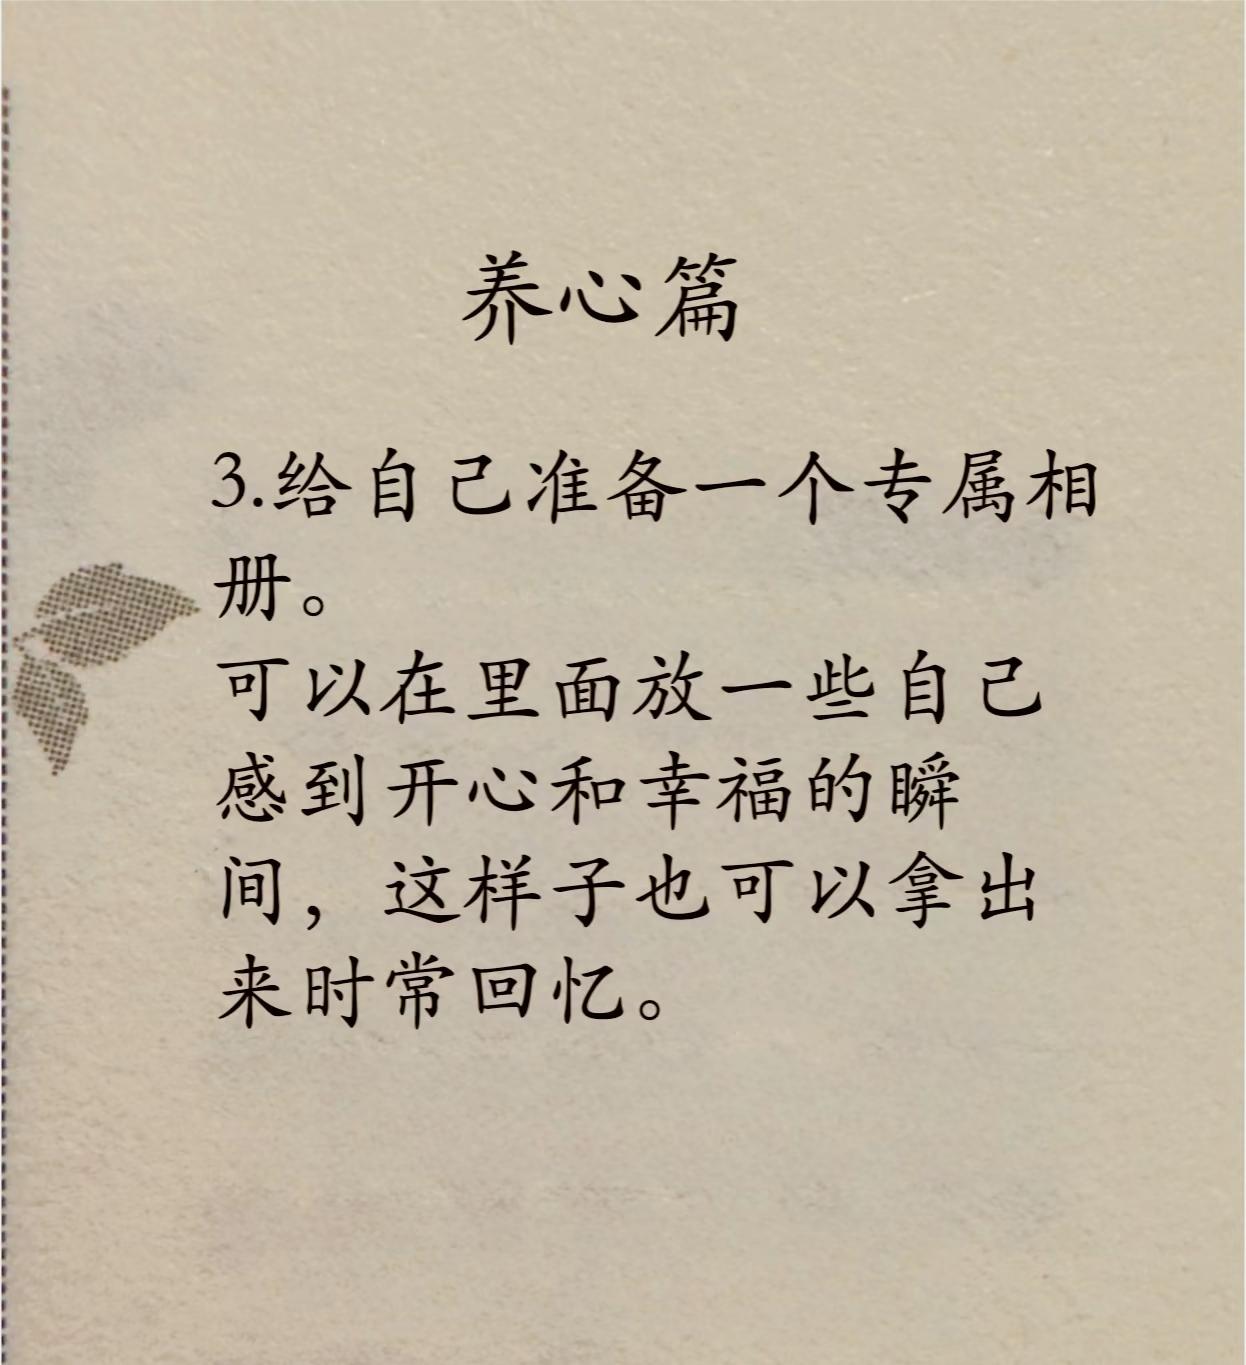 养心篇
3.给自己准备一个专属相
册。
可以在里面放一些自己
感到开心和幸福的瞬
间，这样子也可以拿出
来时常回忆。